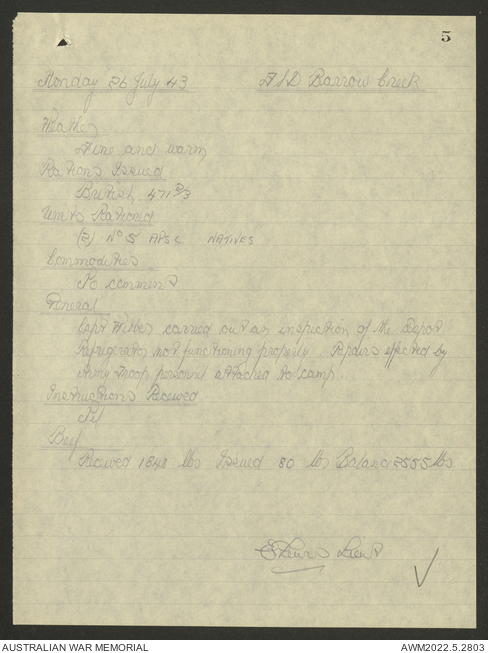 5
Monday 26 July 43 FSD Barrow Creek
Weather
Fine and warm
Rations Issued
British 471 2/3
Units Rationed
(2) No 5 APSC NATIVES
Commodities
No comment
General
Capt Wilkes carried out an inspection of the Depot
Refrigerator not functioning properly Repairs effected by
Army Troop personnel attached to camp.
Instructions Received
Nil
Beef
Received 1848 lbs Issued 80 lbs Balance 2555 lbs
Lieut
AUSTRALIAN WAR MEMORIAL AWM2022.5.2803